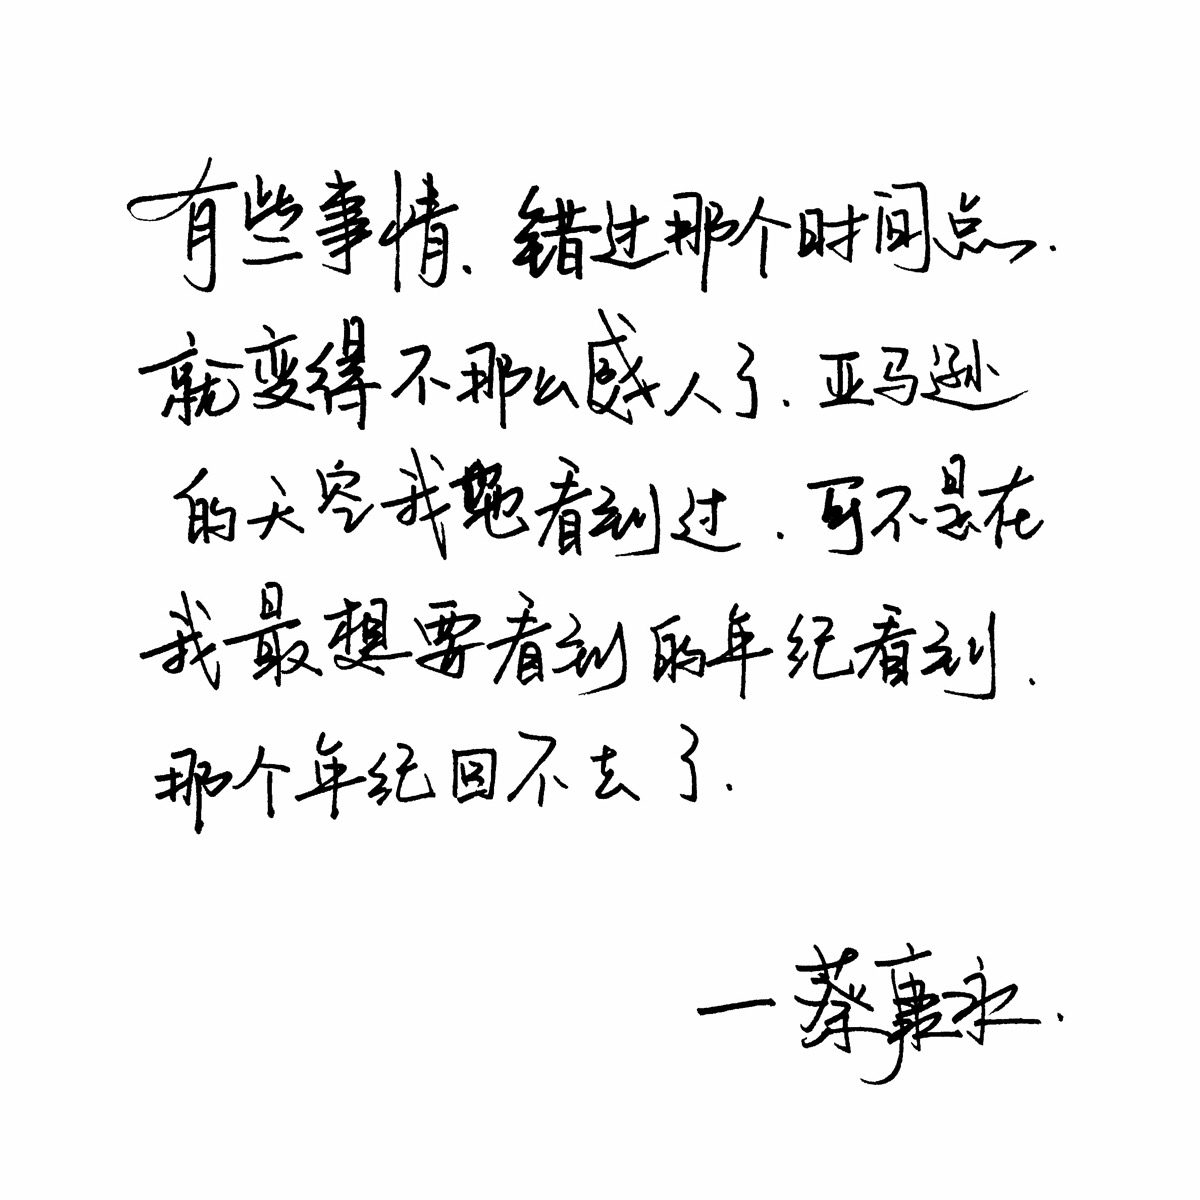 有些事情、错过那个时间点.
就变得不那么感人了.亚马逊
的天空我
看到过.可不是在
我最想要看到的年纪看到.
那个年纪回不去了.
—蔡康永.